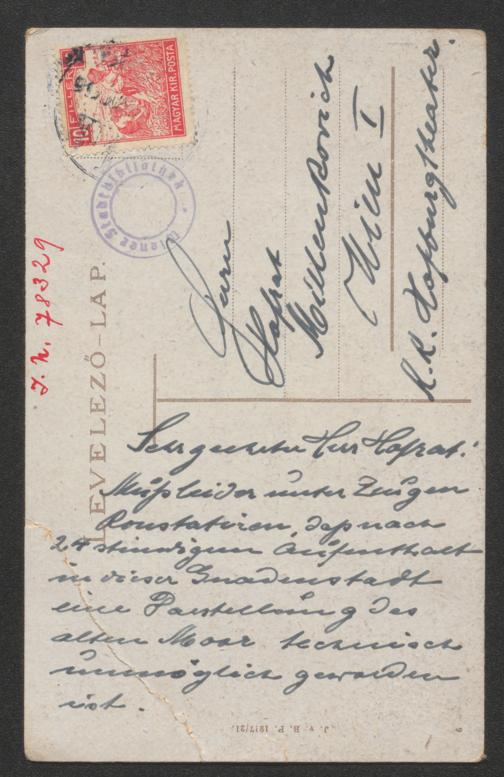 10 FILLÉR
MAGYAR KIR. POSTA
Wiener Stadtbibliothek
J. N. 78329
LEVELEZŐ-LAP.
Herrn
Hofrat
Millenkovich
Wien I
k.k. Hofburgtheater.
Sehr geehrter Herr Hofrat!
Muß leider unter Zeugen
Konstatiren, daß nach
24 stündigem Aufenthalt
in dieser Gnadenstadt
eine Darstellung des
alten Moor technisch
unmöglich geworden
ist.
J. v B. P. 1917/21.